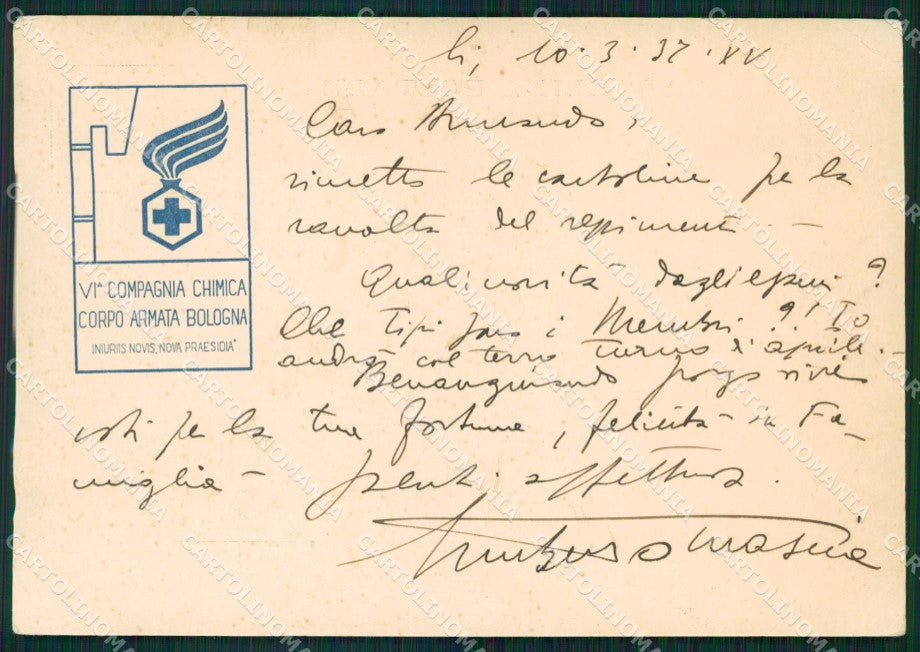 lì, 10.3.37.XV
Caro Armando,
rimetto le cartoline per la
raccolta del reggimento. —
Quali novità dagli esami?
Che tipi sono i Membri?! Io
andrò col terzo turno d'aprile. —
Benaugurando porgo vivi
voti per la tua fortuna, felicità in Fa-
miglia —
affettuosa.
VIᴬ COMPAGNIA CHIMICA
CORPO ARMATA BOLOGNA
INIURIIS NOVIS, NOVA PRAESIDIA
CARTOLINOMANIA